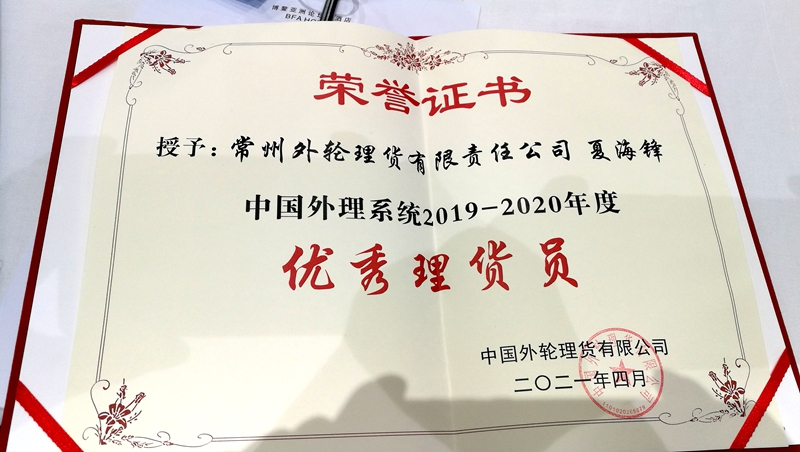 博鳌亚洲论坛
酒店
BFA HO
荣誉证书
授予：常州外轮理货有限责任公司 夏海锋
中国外理系统2019-2020年度
优秀理货员
中国外轮理货有限公司
二〇二一年四月